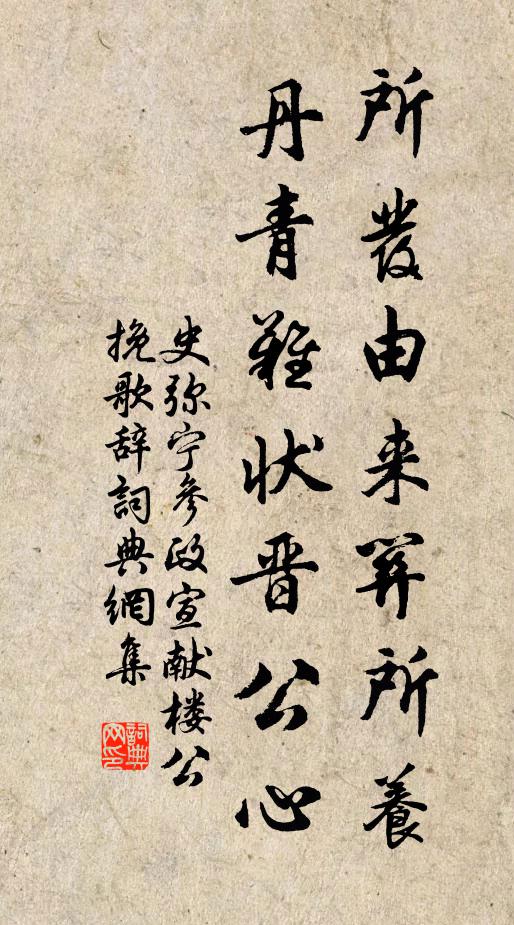 所發由来關所養
丹青難状晋公心
史弥宁參政宣献楼公
挽歌辞詞典網集
詞典
网印